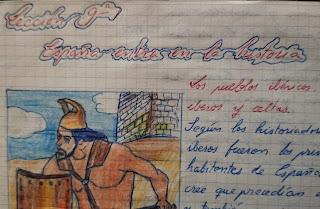 Lección 9ª
España entra en la historia
Los pueblos ibéricos.
iberos y celtas
Según los historiador
iberos fueron los prim
habitantes de España
cree que procedían d
y también